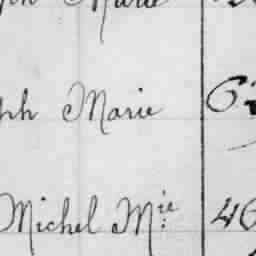 ph Marie
ph Marie 6
Michel M.ie 46